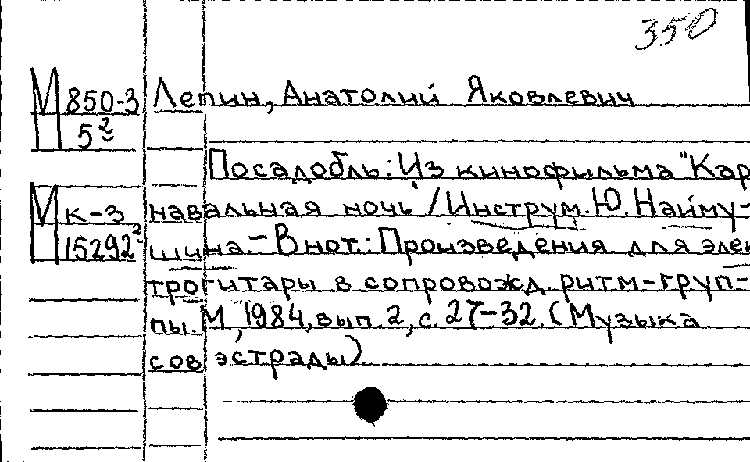 350
М 850-3 Лепин, Анатолий Яковлевич
5²
Посадобль: Из кинофильма "Кар
М к-3 навальная ночь / Инструм. Ю. Найму-
15292² шина.- В нот.: Произведения для элек
трогитары в сопровожд. ритм-груп-
пы. М, 1984, вып. 2, с. 27-32. (Музыка
сов эстрады)